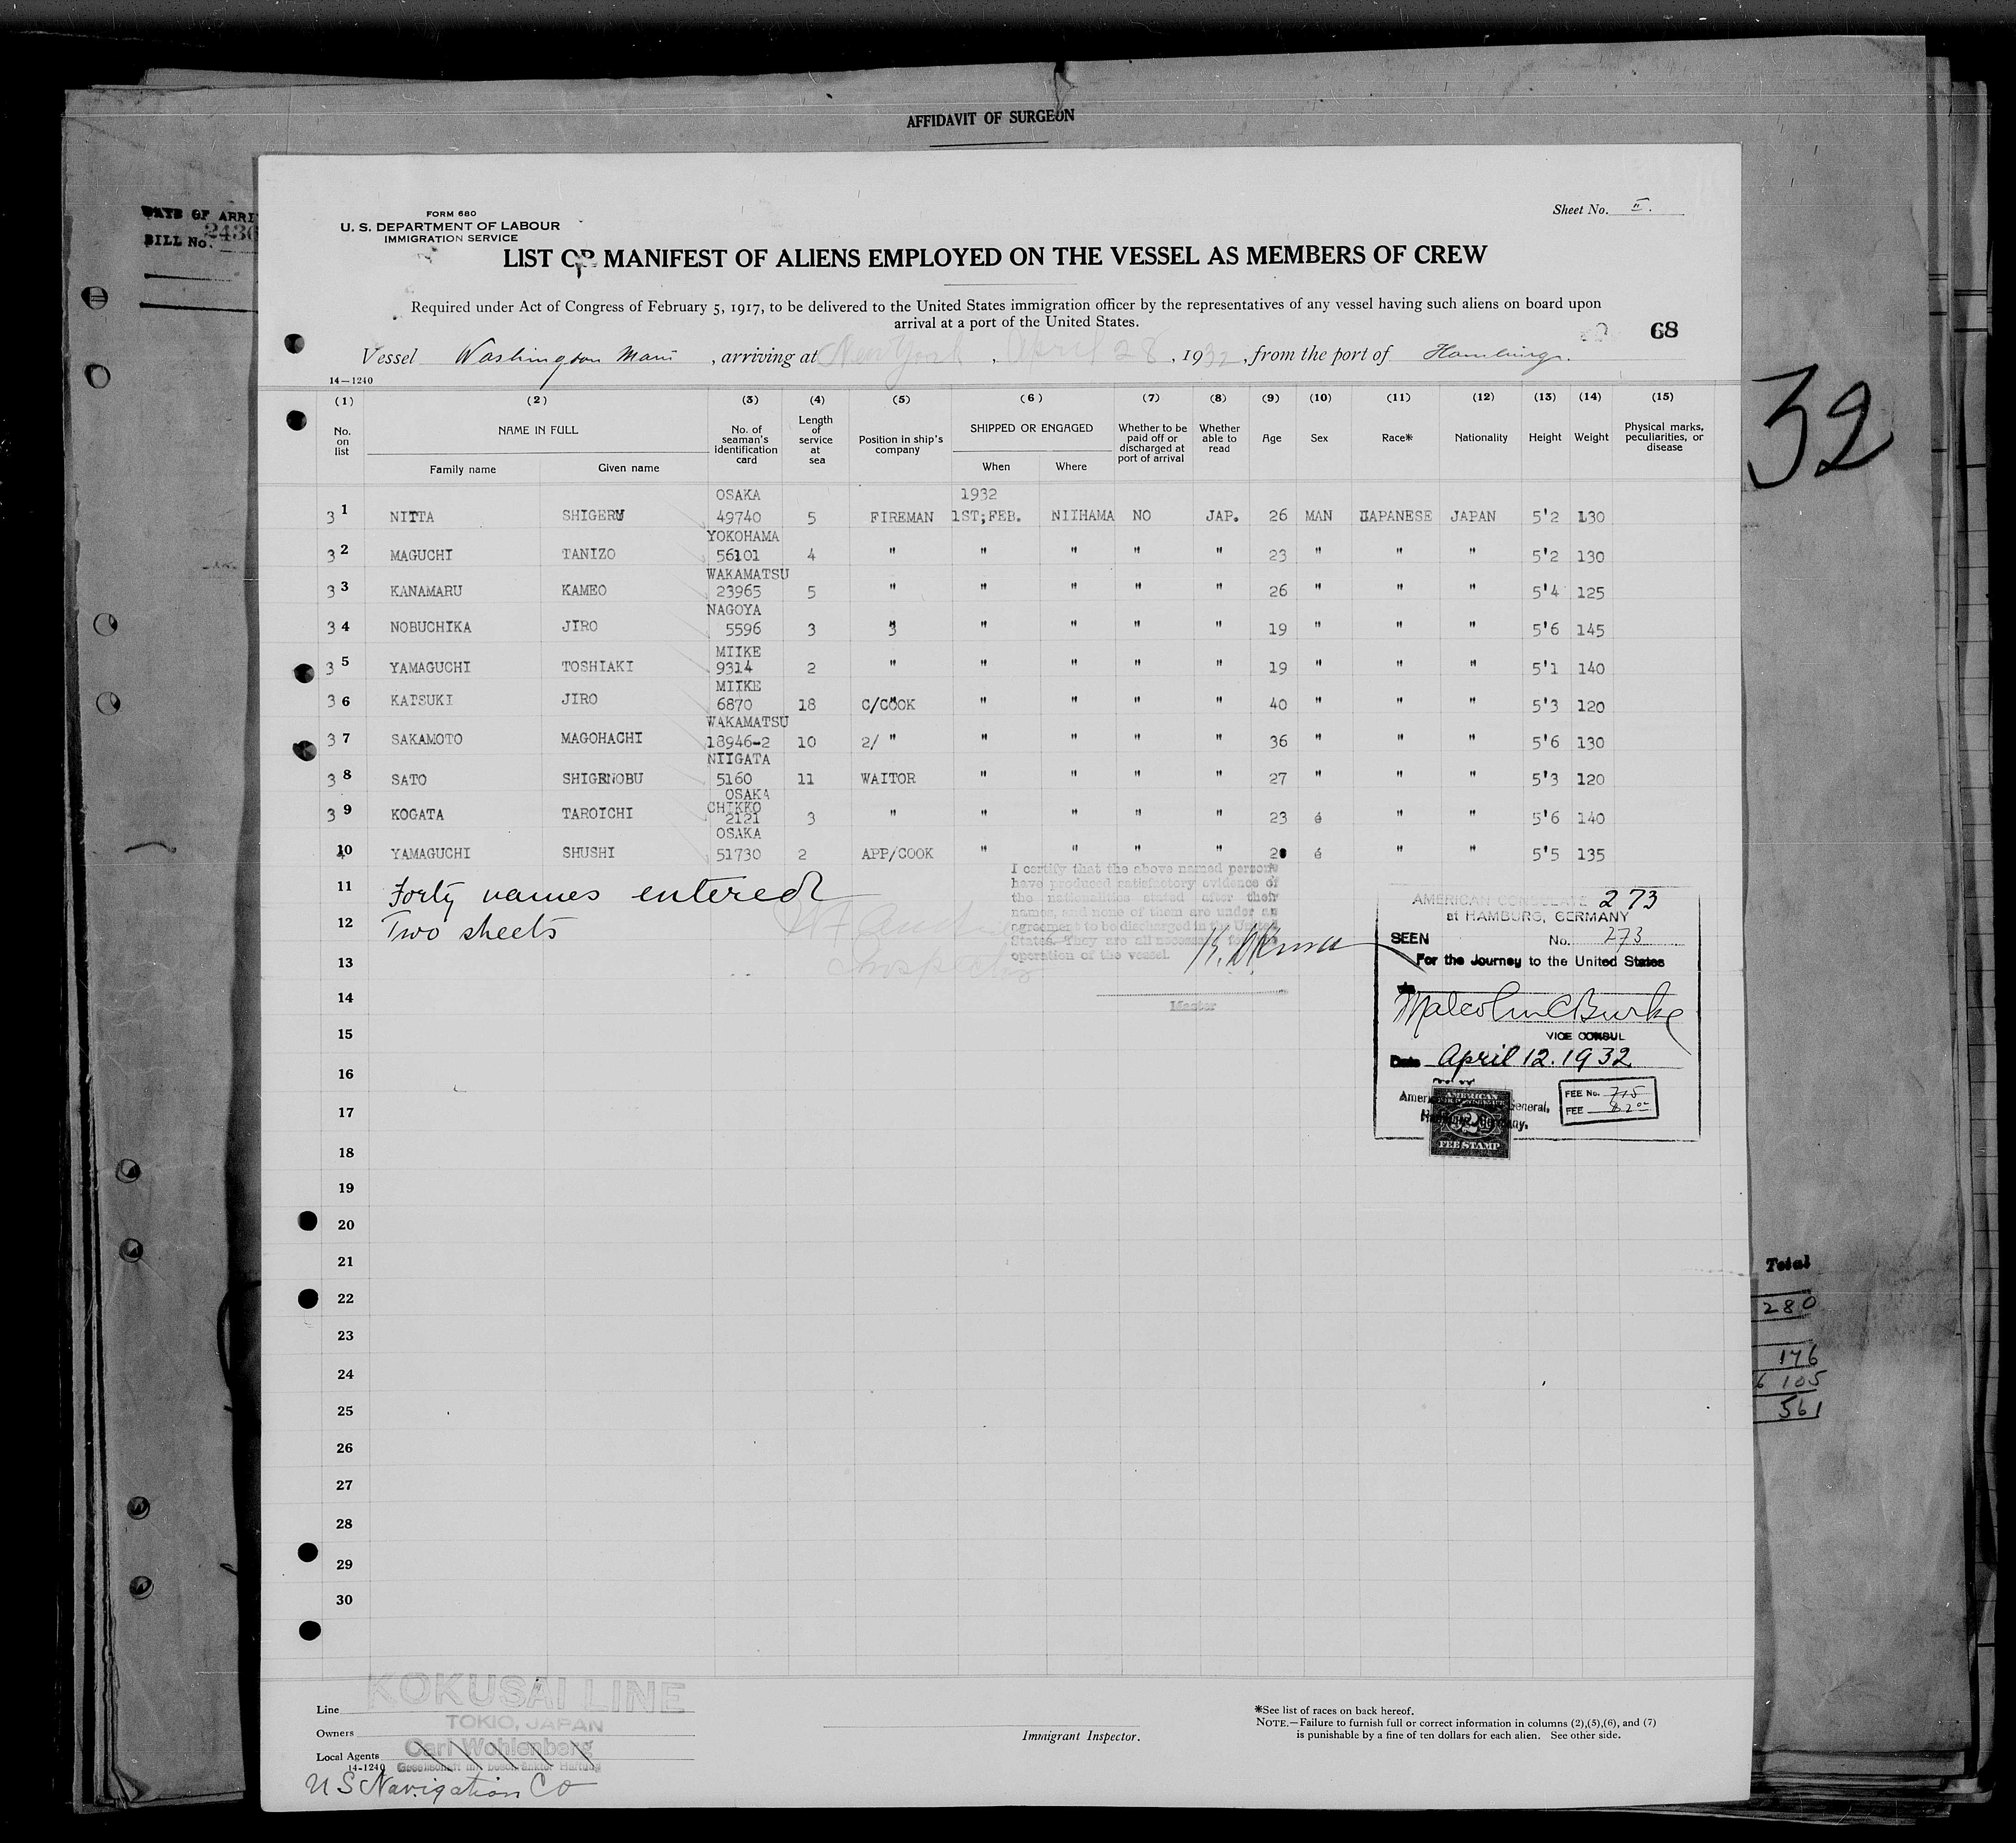 AFFIDAVIT OF SURGEON
DATE OF ARRI
BILL No. 2436
FORM 680
U. S. DEPARTMENT OF LABOUR
IMMIGRATION SERVICE
Sheet No. II.
LIST OR MANIFEST OF ALIENS EMPLOYED ON THE VESSEL AS MEMBERS OF CREW
Required under Act of Congress of February 5, 1917, to be delivered to the United States immigration officer by the representatives of any vessel having such aliens on board upon
arrival at a port of the United States.
68
Vessel Washington Maru , arriving at New York , April 28 , 1932 , from the port of Hamburg.
14—1240
32
(1) (2) (3) (4) (5) (6) (7) (8) (9) (10) (11) (12) (13) (14) (15)
No. on list NAME IN FULL Family name Given name No. of seaman's identification card Length of service at sea Position in ship's company SHIPPED OR ENGAGED When Where Whether to be paid off or discharged at port of arrival Whether able to read Age Sex Race* Nationality Height Weight Physical marks, peculiarities, or disease
OSAKA 1932
31 NITTA SHIGERU 49740 5 FIREMAN 1ST;FEB. NIIHAMA NO JAP. 26 MAN JAPANESE JAPAN 5'2 130
YOKOHAMA
32 MAGUCHI TANIZO 56101 4 " " " " " 23 " " " 5'2 130
WAKAMATSU
33 KANAMARU KAMEO 23965 5 " " " " " 26 " " " 5'4 125
NAGOYA
34 NOBUCHIKA JIRO 5596 3 " " " " " 19 " " " 5'6 145
MIIKE
35 YAMAGUCHI TOSHIAKI 9314 2 " " " " " 19 " " " 5'1 140
MIIKE
36 KATSUKI JIRO 6870 18 C/COOK " " " " 40 " " " 5'3 120
WAKAMATSU
37 SAKAMOTO MAGOHACHI 18946-2 10 2/ " " " " " 36 " " " 5'6 130
NIIGATA
38 SATO SHIGENOBU 5160 11 WAITOR " " " " 27 " " " 5'3 120
OSAKA
CHIKKO
39 KOGATA TAROICHI 2121 3 " " " " " 23 " " 5'6 140
OSAKA
40 YAMAGUCHI SHUSHI 51730 2 APP/COOK " " " " 20 " " 5'5 135
I certify that the above named persons
have produced satisfactory evidence of
the nationalities stated after their
names, and none of them are under an
agreement to be discharged in the United
States. They are all necessary for the
operation of the vessel.
Master
11 Forty names entered
12 Two sheets
Inspector
13
14
15
16
17
18
19
20
21
22
23
24
25
26
27
28
29
30
AMERICAN CONSULATE 273
at HAMBURG, GERMANY
SEEN No. 273
For the Journey to the United States
Malcolm C Burke
VICE CONSUL
Date April 12. 1932
American General,
Hamburg, Germany.
AMERICAN
FEE STAMP
FEE No. 715
FEE $2.00
Total
280
176
6 105
561
Line KOKUSAI LINE
Owners TOKIO, JAPAN
Local Agents Carl Wohlenberg
14-1240 Gesellschaft mit beschränkter Haftung
U S Navigation Co
Immigrant Inspector.
*See list of races on back hereof.
NOTE.—Failure to furnish full or correct information in columns (2),(5),(6), and (7)
is punishable by a fine of ten dollars for each alien. See other side.